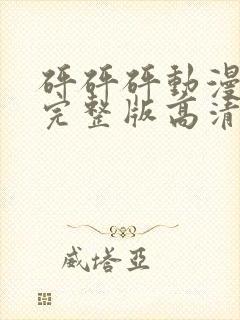 砰砰砰動漫
完整版高清
威塔亞